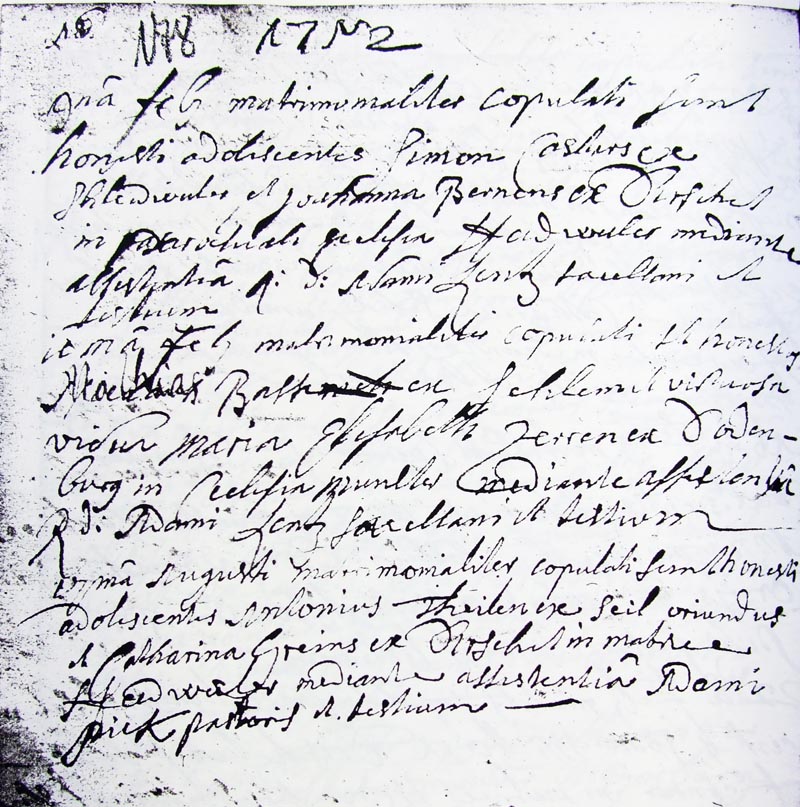 N78 1752
feb matrimonialiter copulati sunt
honesti adolescentes Simon Casters ex
et Johanna Bernens ex Dirschet
in parochiali ecclesia Heidweiler mediante
assistentiâ Adami Lentz sacellani et
testium
feb matrimonialiter copulati st honestus
Mathias ex Sehlem et virtuosa
vidua Maria Elisabeth Zerren ex Doden-
burg in ecclesia mediante assistentiâ
Adami Lentz sacellani et testium
Augusti matrimonialiter copulati sunt honesti
adolescentes Antonius Theilen ex Seil oriundus
et Catharina Greins ex Dirschet in matrice
Heidweiler mediante assistentiâ Adami
pick pastoris et testium